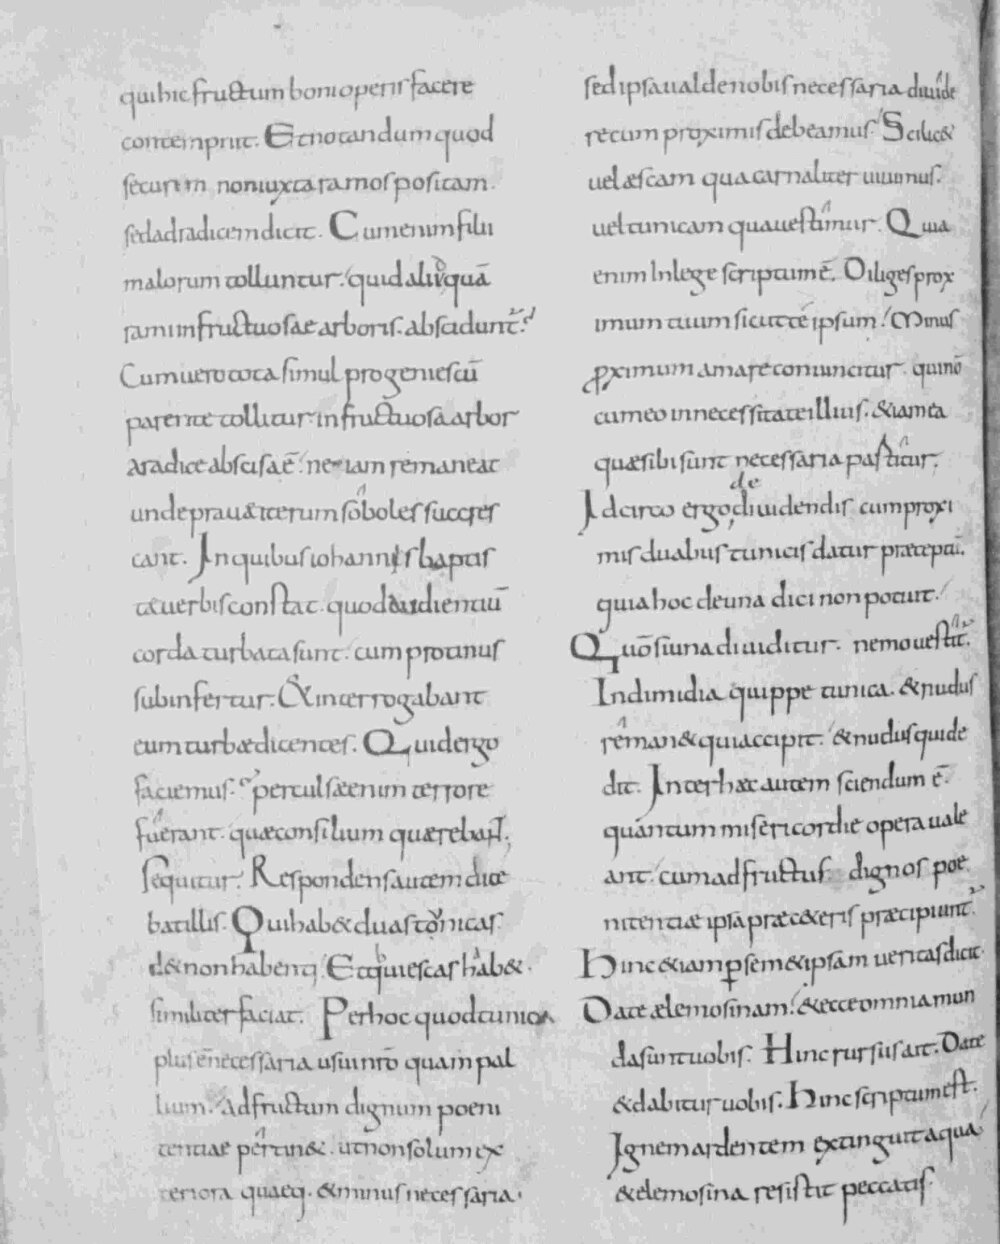 qui hic fructum boni operis facere
contempnit. Et notandum quod
securim non iuxta ramos positam.
sed ad radicem dicit. Cum enim filii
malorum tolluntur. quid aliud quā
rami infructuosae arboris. absciduntˉ.
Cum uero tota simul progenies cū
parente tollitur. infructuosa arbor
a radice abscisa ē. ne iam remaneat
unde praua iterum soboles succres
cant. In quibus iohannis baptis
tæ uerbis constat. quod audientiū
corda turbata sunt. cum protinus
subinfertur. & interrogabant
eum turbæ dicentes. Quid ergo
faciemus. perculsæ enim terrore
fuerant. quæ consilium quærebaNt;
Sequitur. Respondens autem dice
bat illis. Qui hab& duas tonicas.
d& non habenti. Et qui escas hab&.
similiter faciat. Per hoc quod tunica
plus ē necessaria usui nr̄o quam pal
lium. Ad fructum dignum poeni
tentiae pertin&. ut non solum ex
teriora quaeq. & minus necessaria.
sed ipsa ualde nobis necessaria diuide
re cum proximis debeamus. Scilic&
uel æscam qua carnaliter uiuimus.
uel tunicam qua uestimur. Quia
enim In lege scriptum ē. Diliges prox
imum tuum sicut te ipsum. Minus
proximum amare conuincitur. qui nō
cum eo in necessitate illius. &iam ea
quæ sibi sunt necessaria pastitur.
Idcirco ergo de diuidendis cum proxi
mis duabus tunicis datur præceptū.
quia hoc de una dici non potuit.
Quō si una diuiditur. nemo uestitˉ.
In dimidia quippe tunica. & nudus
reman& qui accipit. & nudus qui de
dit. Inter hæc autem sciendum ē.
quantum misericordie opera uale
ant. cum ad fructus dignos poe
nitentiæ ipsa præ c&eris præcipiuntˉ.
Hinc &iam per sem&ipsam ueritas dicit.
Date ælemosinam. & ecce omnia mun
da sunt uobis. Hinc rursus ait. Date
& dabitur uobis. Hinc scriptum est.
Ignem ardentem extinguit aqua.
& elemosina resistit peccatis.